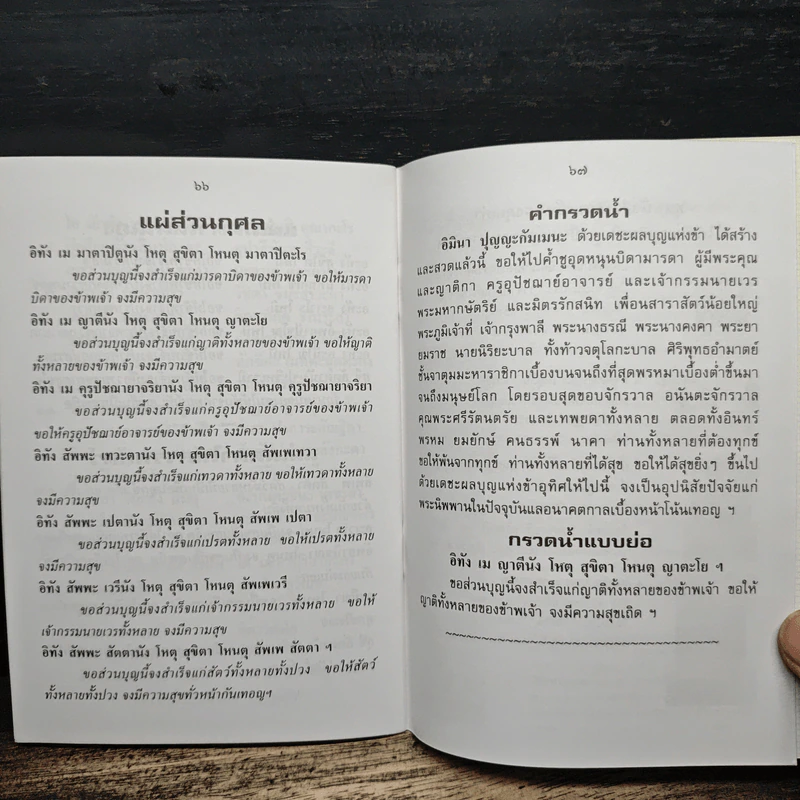 ๖๖
แผ่ส่วนกุศล
อิทัง เม มาตาปิตูนัง โหตุ สุขิตา โหนตุ มาตาปิตะโร
ขอส่วนบุญนี้จงสำเร็จแก่มารดาบิดาของข้าพเจ้า ขอให้มารดา
บิดาของข้าพเจ้า จงมีความสุข
อิทัง เม ญาตีนัง โหตุ สุขิตา โหนตุ ญาตะโย
ขอส่วนบุญนี้จงสำเร็จแก่ญาติทั้งหลายของข้าพเจ้า ขอให้ญาติ
ทั้งหลายของข้าพเจ้า จงมีความสุข
อิทัง เม คุรูปัชฌายาจริยานัง โหตุ สุขิตา โหนตุ คุรูปัชฌายาจริยา
ขอส่วนบุญนี้จงสำเร็จแก่ครูอุปัชฌาย์อาจารย์ของข้าพเจ้า
ขอให้ครูอุปัชฌาย์อาจารย์ของข้าพเจ้า จงมีความสุข
อิทัง สัพพะ เทวะตานัง โหตุ สุขิตา โหนตุ สัพเพเทวา
ขอส่วนบุญนี้จงสำเร็จแก่เทวดาทั้งหลาย ขอให้เทวดาทั้งหลาย
จงมีความสุข
อิทัง สัพพะ เปตานัง โหตุ สุขิตา โหนตุ สัพเพ เปตา
ขอส่วนบุญนี้จงสำเร็จแก่เปรตทั้งหลาย ขอให้เปรตทั้งหลาย
จงมีความสุข
อิทัง สัพพะ เวรีนัง โหตุ สุขิตา โหนตุ สัพเพเวรี
ขอส่วนบุญนี้จงสำเร็จแก่เจ้ากรรมนายเวรทั้งหลาย ขอให้
เจ้ากรรมนายเวรทั้งหลาย จงมีความสุข
อิทัง สัพพะ สัตตานัง โหตุ สุขิตา โหนตุ สัพเพ สัตตา ฯ
ขอส่วนบุญนี้จงสำเร็จแก่สัตว์ทั้งหลายทั้งปวง ขอให้สัตว์
ทั้งหลายทั้งปวง จงมีความสุขทั่วหน้ากันเทอญฯ
๖๗
คำกรวดน้ำ
อิมินา ปุญญะกัมเมนะ ด้วยเดชะผลบุญแห่งข้า ได้สร้าง
และสวดแล้วนี้ ขอให้ไปค้ำชูอุดหนุนบิดามารดา ผู้มีพระคุณ
และญาติกา ครูอุปัชฌาย์อาจารย์ และเจ้ากรรมนายเวร
พระมหากษัตริย์ และมิตรรักสนิท เพื่อนสาราสัตว์น้อยใหญ่
พระภูมิเจ้าที่ เจ้ากรุงพาลี พระนางธรณี พระนางคงคา พระยา
ยมราช นายนิริยะบาล ทั้งท้าวจตุโลกะบาล ศิริพุทธอำมาตย์
ชั้นจาตุมมะหาราชิกาเบื้องบนจนถึงที่สุดพรหมาเบื้องต่ำขึ้นมา
จนถึงมนุษย์โลก โดยรอบสุดขอบจักรวาล อนันตะจักรวาล
คุณพระศรีรัตนตรัย และเทพยดาทั้งหลาย ตลอดทั้งอินทร์
พรหม ยมยักษ์ คนธรรพ์ นาคา ท่านทั้งหลายที่ต้องทุกข์
ขอให้พ้นจากทุกข์ ท่านทั้งหลายที่ได้สุข ขอให้ได้สุขยิ่งๆ ขึ้นไป
ด้วยเดชะผลบุญแห่งข้าอุทิศให้ไปนี้ จงเป็นอุปนิสัยปัจจัยแก่
พระนิพพานในปัจจุบันแลอนาคตกาลเบื้องหน้าโน้นเทอญ ฯ
กรวดน้ำแบบย่อ
อิทัง เม ญาตีนัง โหตุ สุขิตา โหนตุ ญาตะโย ฯ
ขอส่วนบุญนี้จงสำเร็จแก่ญาติทั้งหลายของข้าพเจ้า ขอให้
ญาติทั้งหลายของข้าพเจ้า จงมีความสุขเถิด ฯ